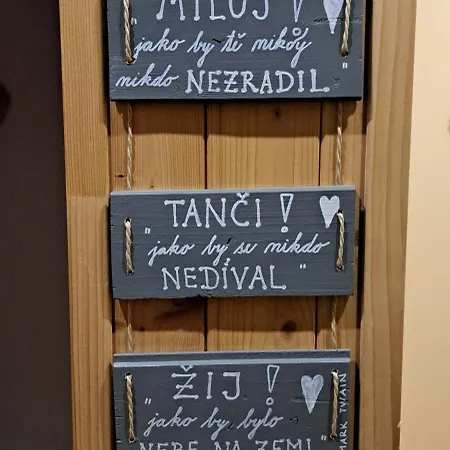 „MILUJ!
„jako by tě nikdy
nikdo NEZRADIL"
„TANČI!
„jako by se nikdo
NEDÍVAL"
„ŽIJ!
„jako by bylo
NEBE NA ZEMI"
MARK TWAIN